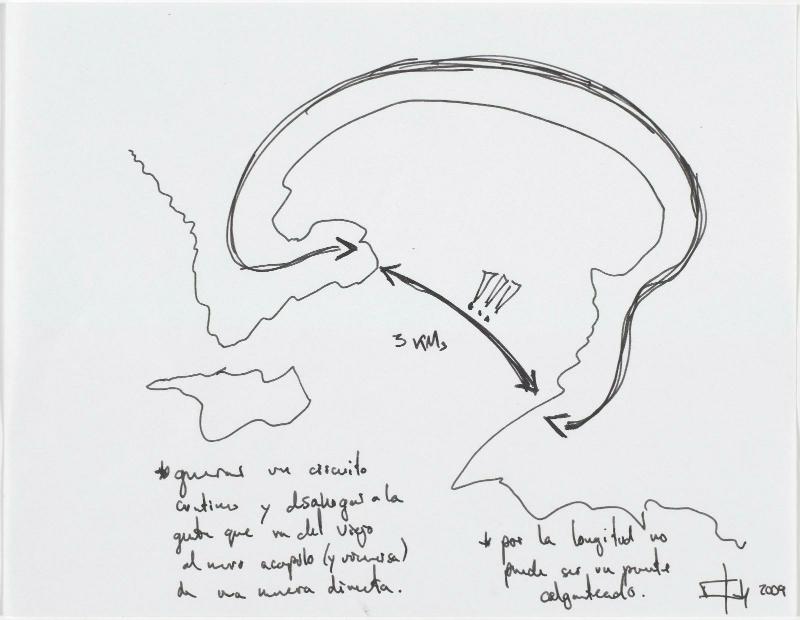 !!!
3 KMs
* generar un circuito
continuo y desahogar a la
gente que va del viejo
al nuevo acapulco (y viceversa)
de una manera directa.
* por la longitud no
puede ser un puente
2009